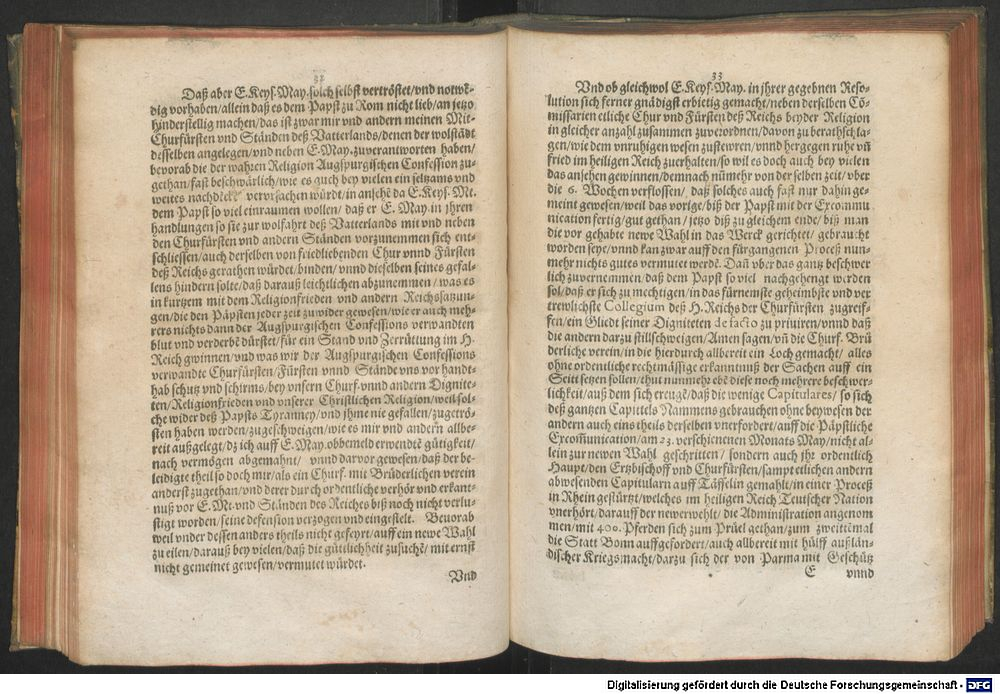 32
Daß aber E. Keys. May. solch selbst vertröstet/vnd notwē-
dig vorhaben/allein daß es dem Papst zu Rom nicht lieb/an jetzo
hinderstellig machen/das ist zwar mir vnd andern meinen Mit-
Churfürsten vnd Ständen deß Vatterlands/denen der wolstādt
desselben angelegen/vnd neben E. May. zuverantworten haben/
bevorab die der wahren Religion Augspurgischen Confession zu-
gethan/fast beschwärlich/wie es auch bey vielen ein seltzams vnd
weites nachdēckē verursachen würdt/in ansehē da E. Keys. Mt.
dem Papst so viel einraumen wollen/ daß er E. May. in jhren
handlungen so sie zur wolfahrt deß Vatterlands mit vnd neben
den Churfürsten vnd andern Ständen vorzunemmen sich ent-
schliessen/auch derselben von friedliebenden Chur vnnd Fürsten
deß Reichs gerathen würdet/binden/vnnd dieselben seines gefal-
lens hindern solte/daß darauß leichtlichen abzunemmen/was es
in kurtzem mit dem Religionfrieden vnd andern Reichssatzun-
gen/die den Päpsten jeder zeit zu wider gewesen/wie er auch meh-
rers nichts dann der Augspurgischen Confessions verwandten
blut vnd verderbē dürstet/für ein Stand vnd Zerrütung im H.
Reich gwinnen/vnd was wir der Augspurgischen Confessions
verwandte Churfürsten/Fürsten vnnd Stände vns vor handt-
hab schutz vnd schirms/bey vnsern Churf. vnnd andern Dignite-
ten/Religionfrieden vnd vnserer Christlichen Religion/weil sol-
che wider deß Papsts Tyranney/vnd jhme nie gefallen/zugetrö-
sten haben werden/zugeschweigen/wie es mir vnd andern allbe-
reit außgelegt/dz ich auff E. May. obbemeld erwendtē gütigkeit/
nach vermögen abgemahnt/ vnnd darvor gewesen/daß der be-
leidigte theil so doch mir/als ein Churf. mit Brüderlichen verein
anderst zugethan/vnd derer durch ordentliche verhör vnd erkant-
nuß vor E. Mt. vnd Ständen des Reiches biß noch nicht verlu-
stigt worden/seine defension verzogen vnd eingestelt. Bevorab
weil vnder dessen anders theils nicht gefeyrt/auff ein newe Wahl
zu eilen/darauß bey vielen/daß die güttlichheit zusuchē/mit ernst
nicht gemeinet gewesen/vermutet würdet.
Vnd
33
Vnd ob gleichwol E. Keys. May. in jhrer gegebnen Reso-
lution sich ferner gnädigst erbietig gemacht/neben derselben Cō-
missarien etliche Chur vnd Fürsten deß Reichs beyder Religion
in gleicher anzahl zusammen zuverordnen/davon zu berathschla-
gen/wie dem vnruhigen wesen zustewren/vnnd hergegen ruhe vñ
fried im heiligen Reich zuerhalten/so wil es doch auch bey vielen
das ansehen gewinnen/demnach nūmehr von der selben zeit/vber
die 6. Wochen verflossen/ daß solches auch fast nur dahin ge-
meint gewesen/weil das vorige/biß der Papst mit der Excommu
nication fertig/gut gethan/jetzo diß zu gleichem ende/biß man
die vor gehabte newe Wahl in das Werck gerichtet/ gebraucht
worden seye/vnnd kan zwar auff den fürgangenen Proceß nun-
mehr nichts gutes vermutet werdē. Dañ vber das gantz beschwer
lich zuvernemmen/daß dem Papst so viel nachgehengt werden
sol/daß er sich zu mechtigen/in das fürnemste geheimbste vnd ver
trewlichste Collegium deß H. Reichs der Churfürsten zugreif-
fen/ein Gliedt seiner Digniteten de facto zu priuiren/vnnd daß
die andern darzu stillschweigen/Amen sagen/vñ die Churf. Brü
derliche verein/in die hierdurch allbereit ein Loch gemacht/ alles
ohne ordentliche rechtmässige erkanntnuß der Sachen auff ein
Seitt setzen sollen/thut nunmehr ebē diese noch mehrere beschwer-
lichkeit/auß dem sich ereuge/daß die wenige Capitulares/ so sich
deß gantzen Capittels Nammens gebrauchen ohne beywesen der
andern auch eins theils derselben vnerfordert/auff die Päpstliche
Excommunication/am 23. verschienenen Monats May/nicht al-
lein zur newen Wahl geschritten/ sondern auch jhr ordenlich
Haupt/den Ertzbischoff vnd Churfürsten/sampt etlichen andern
abwesenden Capitularn auff Täffelin gemahlt/in einer Proceß
in Rhein gestürtzt/welches im heiligen Reich Teutscher Nation
vnerhört/darauff der newerwehlt/ die Administration angenom
men/mit 400. Pferden sich zum Prüel gethan/zum zweittēmal
die Statt Bonn auffgefordert/auch allbereit mit hülff außlän-
discher Kriegsmacht/darzu sich der von Parma mit Geschütz
E vnnd
Digitalisierung gefördert durch die Deutsche Forschungsgemeinschaft - DFG